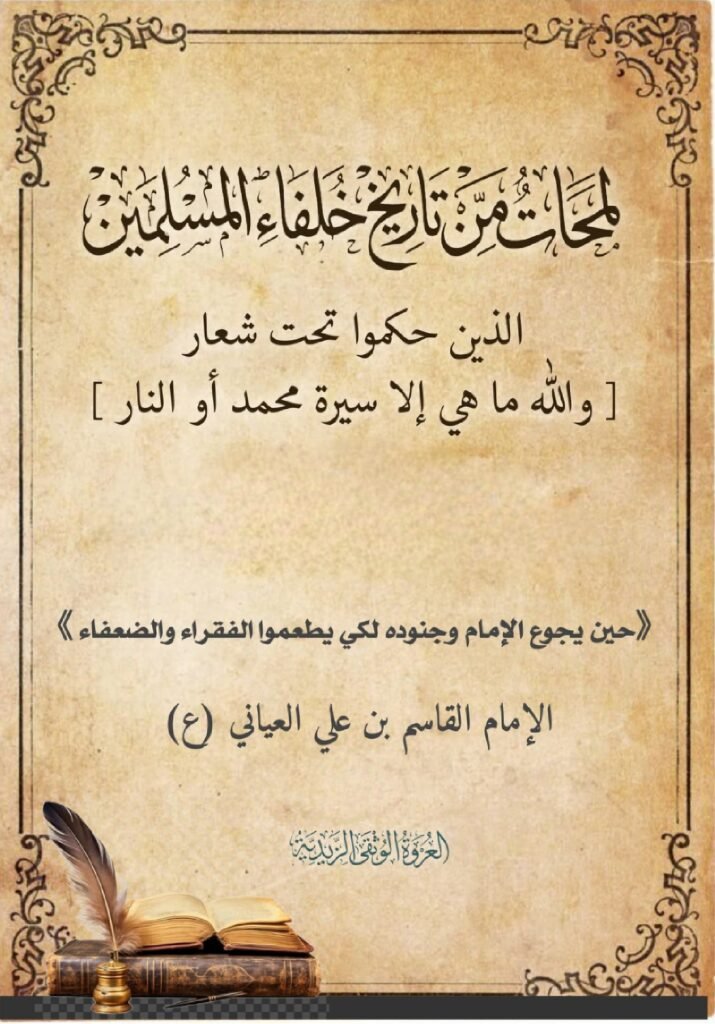 لَمَحَاتٌ مِّنْ تَارِيخِ خُلَفَاءِ الْمُسْلِمِينَ
الذين حكموا تحت شعار
[ والله ما هي إلا سيرة محمد أو النار ]
《حين يجوع الإمام وجنوده لكي يطعموا الفقراء والضعفاء》
الإمام القاسم بن علي العياني (ع)
العُرْوَةُ الوُثْقَى الزَّيْدِيَّة